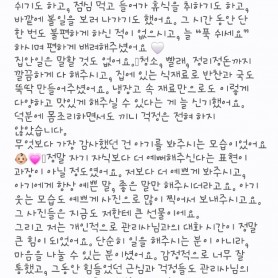 쉬기도 하고, 점심 먹고 들어가 휴식을 취하기도 하고,
바깥에 볼일을 보러 나가기도 했어요. 그 시간 동안 단
한 번도 불편하게 하신 적이 없으시고, 늘 “푹 쉬세요”
하시며 편하게 배려해주셨어요 🤍
집안일은 말할 것도 없어요. 청소, 빨래, 정리정돈까지
깔끔하게 다 해주시고, 집에 있는 식재료로 반찬과 국도
뚝딱 만들어주셨어요. 냉장고 속 재료만으로도 이렇게
다양하고 맛있게 해주실 수 있다는 게 늘 신기했어요.
덕분에 몸조리하면서도 끼니 걱정은 전혀 하지
않았습니다.
무엇보다 가장 감사했던 건 아기를 봐주시는 모습이었어요
👶💗 정말 자기 자식보다 더 예뻐해주신다는 표현이
과장이 아닐 정도였어요. 저보다 더 예쁘게 봐주시고,
아기에게 항상 예쁜 말, 좋은 말만 해주시더라고요. 아기
웃는 모습도 예쁘게 사진으로 많이 찍어서 보내주시고요.
그 사진들은 지금도 저한테 큰 선물이에요.
그리고 저는 개인적으로 관리사님과의 대화 시간이 정말
큰 힘이 되었어요. 단순히 일을 해주시는 분이 아니라,
마음을 나눌 수 있는 분이셨어요. 감정적으로 너무 잘
통했고, 그동안 힘들었던 근심과 걱정들도 관리사님의